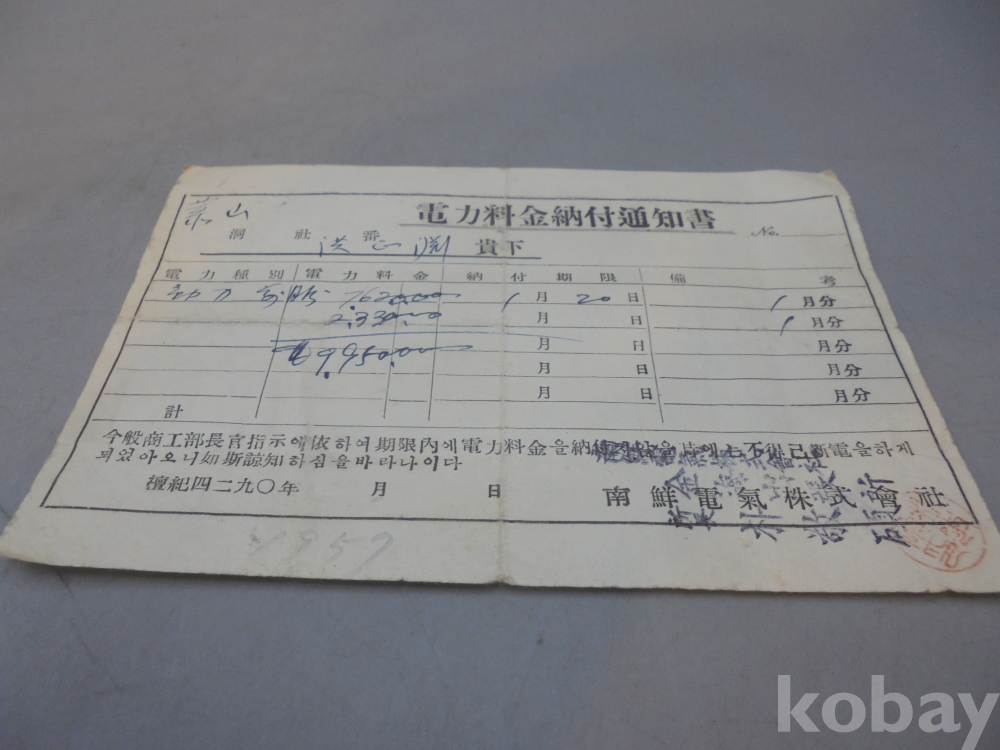 電力料金納付通知書
山
No.
洞 社 番
洪 正 貴下
電力種別 電力料金 納付期限 備考
動力 7620.00 1月 20日 1月分
2.330.00 月 日 1月分
9950.00 月 日 月分
月 日 月分
月 日 月分
計
今般商工部長官指示에依하여期限內에電力料金을納付 不得已斷電을하게
되었아오니如斯諒知하심을바라나이다
檀紀四二九〇年 月 日 南鮮電氣株式會社
1957
kobay